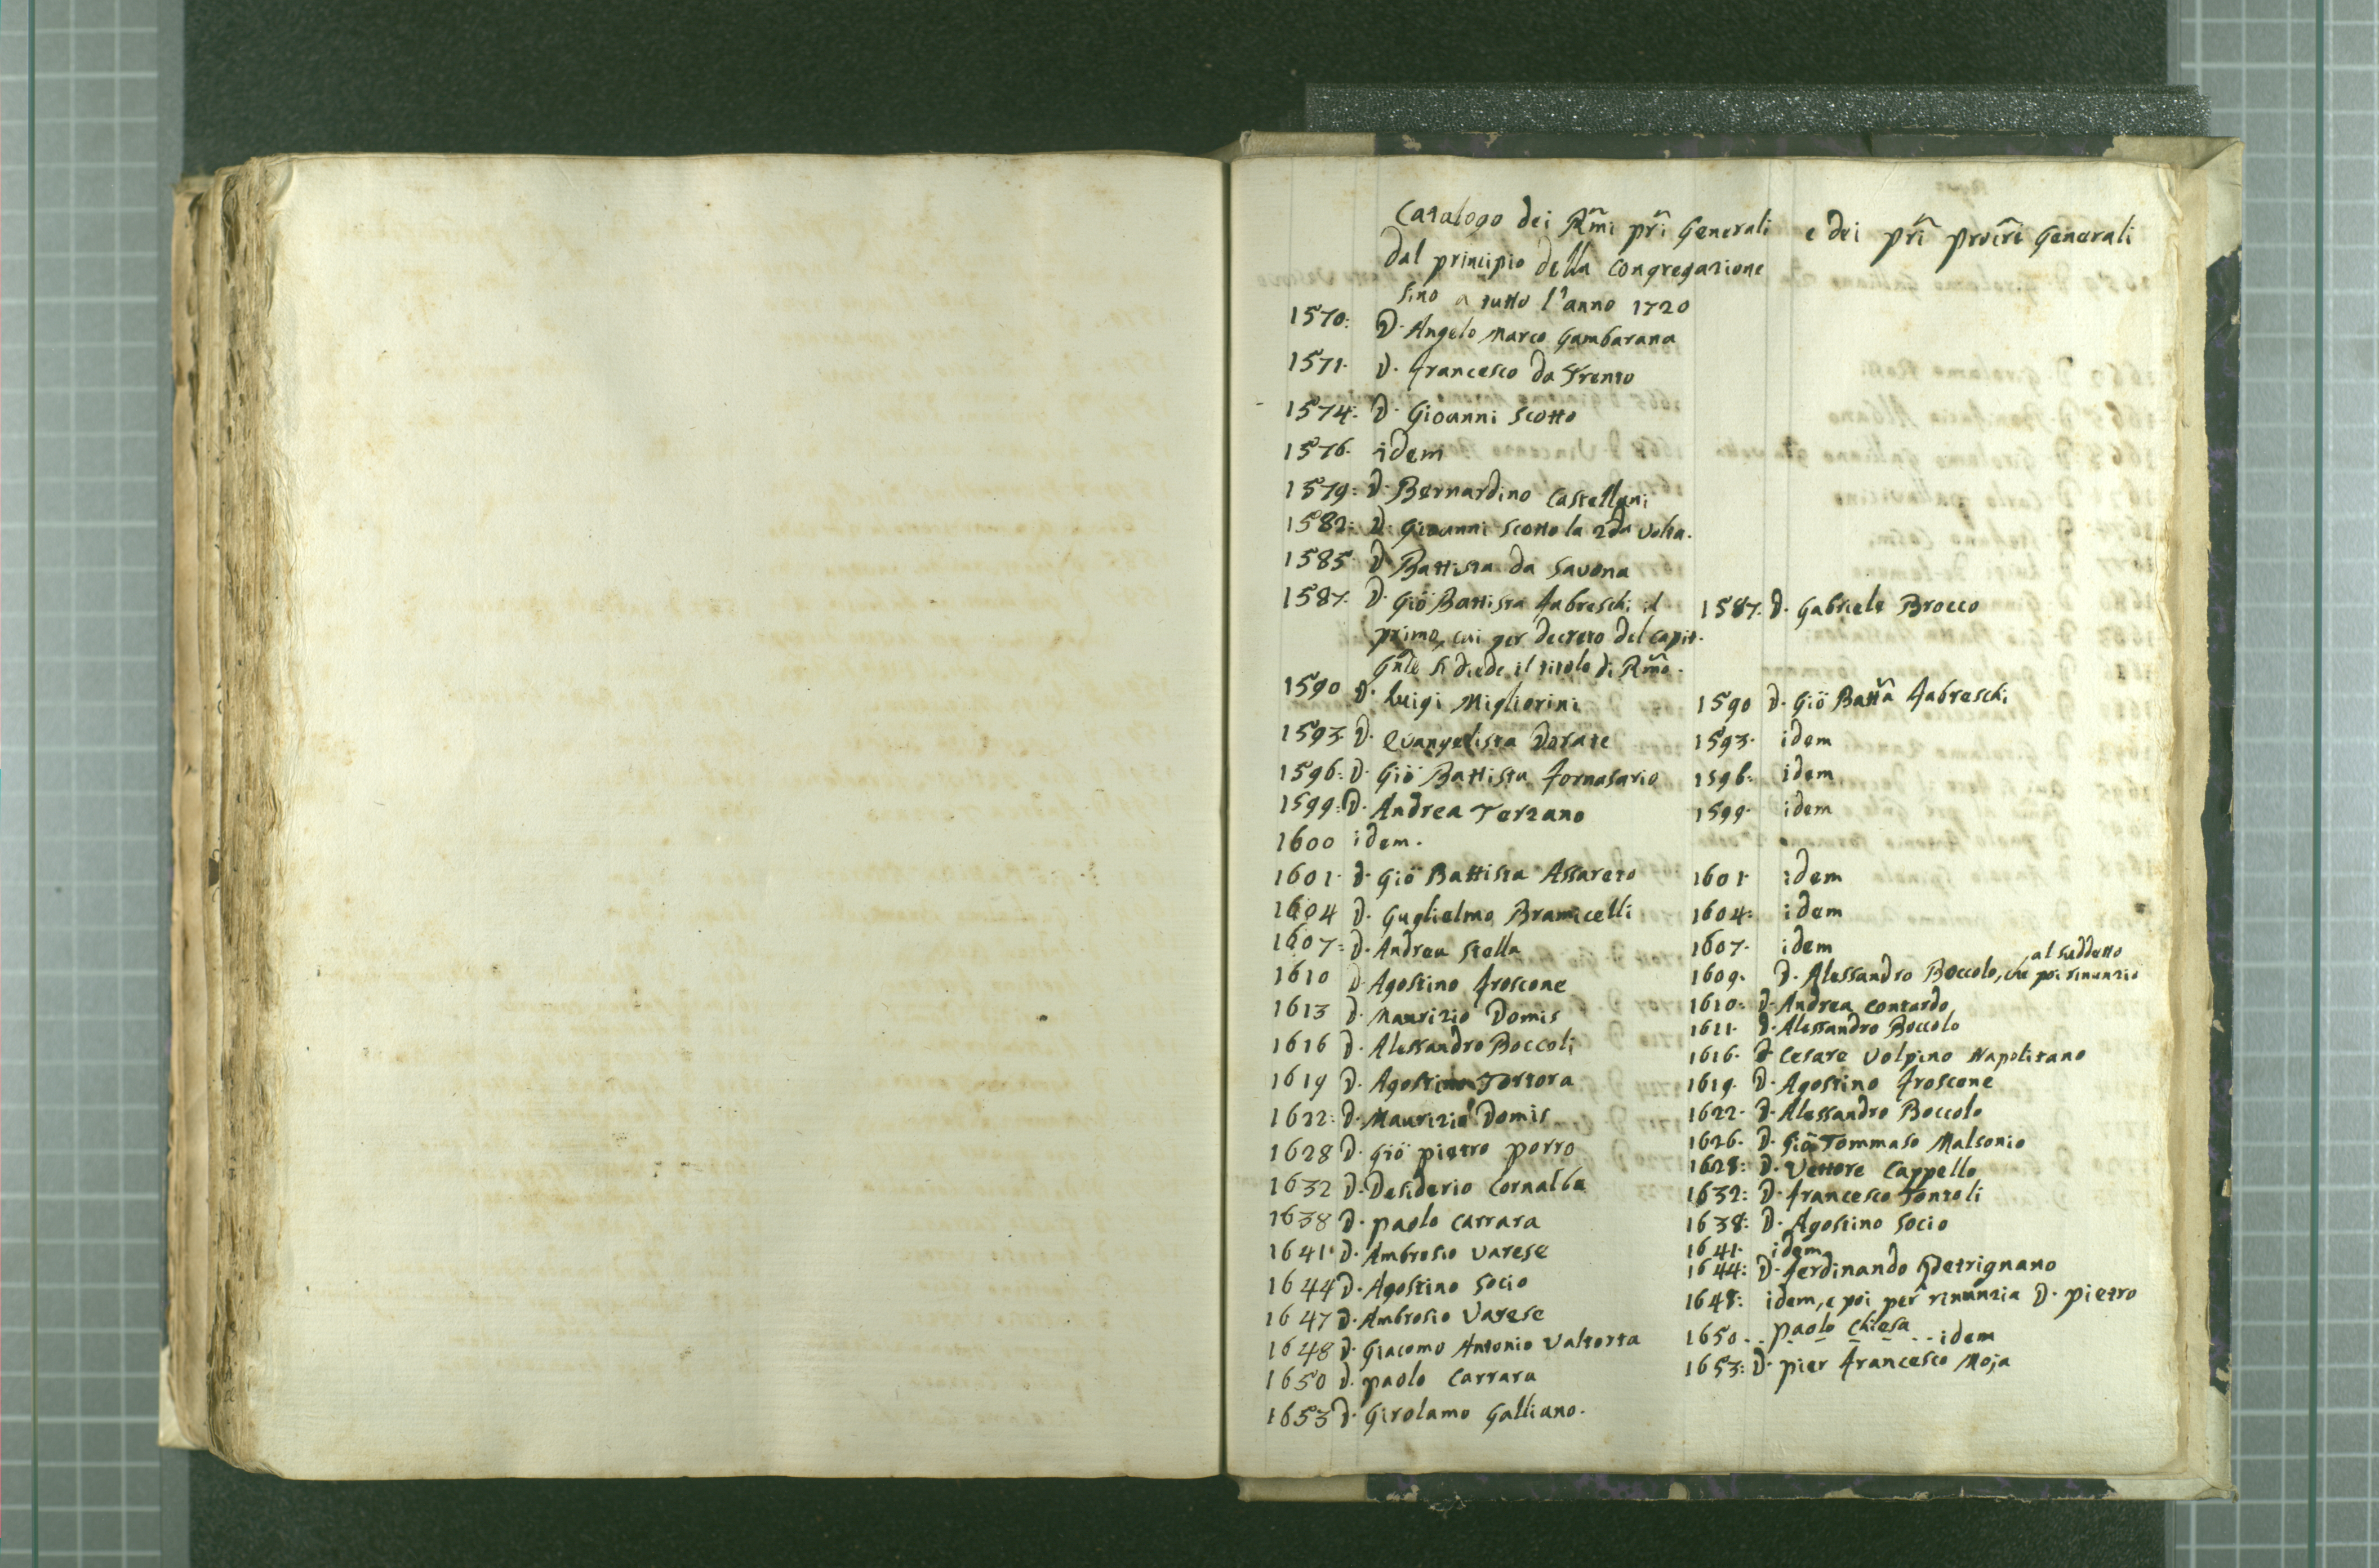 Catalogo dei Rm̃i pr̃i Generali
dal principio della Congregazione
sino a tutto l'anno 1720
1570: D. Angelo Marco Gambarana
1571. D. Francesco da Trento
1574: D. Giovanni Scotto
1576. idem
1579: D. Bernardino Castellani
1582: D. Giovanni Scotto la 2da volta.
1585 D. Battista da Savona
1587. D. Giō Battista Fabreschi il
primo, cui per decreto del capit.
Gñle si diede il titolo di Rm̃o.
1590 D. Luigi Migliorini
1593. D. Evangelista Dorate
1596: D. Giō Battista Fornasario
1599: D. Andrea Terzano
1600 idem.
1601. D. Giō Battista Assareto
1604 D. Guglielmo Bramicelli
1607: D. Andrea Stella
1610 D. Agostino Froscone
1613 D. Maurizio Domis
1616 D. Alessandro Boccoli
1619 D. Agostino Tortora
1622: D. Maurizio Domis
1628 D. Giō pietro porro
1632 D. Desiderio Cornalba
1638 D. paolo Carrara
1641. D. Ambrosio Varese
1644 D. Agostino Socio
1647 D. Ambrosio Varese
1648 D. Giacomo Antonio Valtorta
1650 D. paolo Carrara
1653 D. Girolamo Galliano.
e dei pr̃i procr̃i Generali
1587. D. Gabriele Brocco
1590 D. Giō Batt̃a Fabreschi
1593. idem
1596. idem
1599. idem
1601 idem
1604: idem
1607. idem
al suddetto
1609. D. Alessandro Boccolo, che poi rinunziò
1610: D. Andrea Contardo
1611. D. Alessandro Boccolo
1616. D. Cesare Volpino Napolitano
1619. D. Agostino Froscone
1622. D. Alessandro Boccolo
1626. D. Giō Tommaso Malsonio
1628: D. Vettore Cappello
1632: D. Francesco Tontoli
1638: D. Agostino Socio
1641. idem
1644: D. Ferdinando Petrignano
1648: idem, e poi per rinunzia D. pietro
paolo Chiesa
1650 . . . . . . . idem
1653: D. pier Francesco Moja